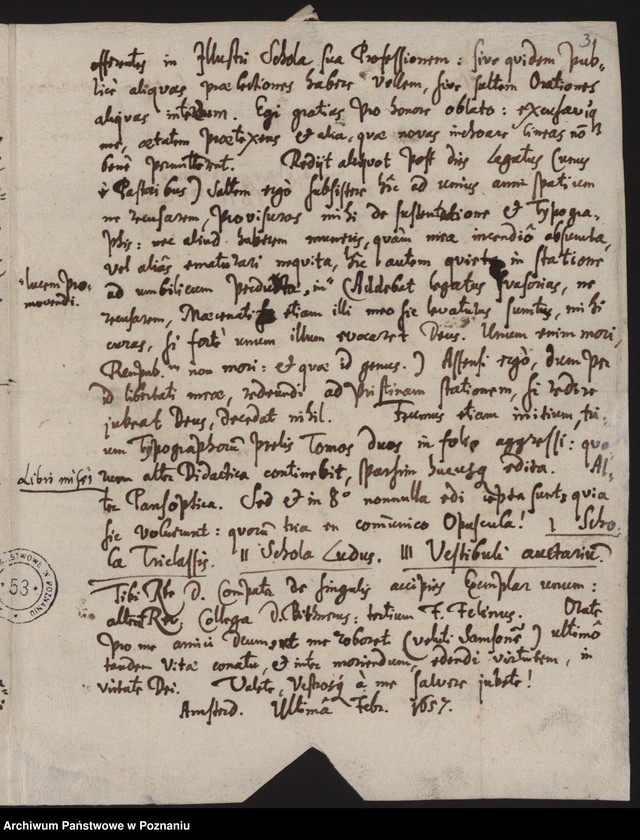 3
offerentes in Illustri Schola sua Professionem: sive quidem pub-
licè aliquas praelectiones habere vellem, sive saltem Orationes
aliquas interdum. Egi gratias pro honore oblato: excusavi q;
me, aetatem praetexens et alia, quae novas inchoare lineas nō
benè permitterent. Redijt aliquot post dies Legatus (unus
è Pastoribus) saltem ergò subsistere hîc ad unius anni spatium
ne recusarem, provisuros mihi de sustentatione et Typogra-
phis: nec aliud haberem muneris, quàm mea incendiô absumta,
vel aliàs ematurari nequita, hîc autem quieta in statione
ad umbilicum perducta, in (Addebat legatus svasorias, ne
"lucem pro-
movendi.
recusarem, Maecenati etiam illi meo sic levatum sumtus, mihi
curas, si fortè unum illum evocaret Deus. Unum enim mori,
Rempub. non mori: et quae id genus.) Assensi ergò, dum per
id libertati meae, redeundi ad pristinam stationem, si redire
jubeat Deus, decedat nihil. Fecimus etiam initium, tri-
um Typographorum prelis Tomos duos in folio aggressi: quo-
Libri missi
rum alter Didactica continebit, sparsim hucusq; edita. Al-
ter Pansophica. Sed et in 8º nonnulla edi coepta sunt, quia
sic voluerunt: quorum tria en com̄unico Opuscula! I Scho-
la Triclassis. II Schola Ludus. III Vestibuli auctarium.
Tibi Rde D. Compater de singulis accipies Exemplar unum:
alterum Collega D. Bythnerus: tertium F. Felinus. Orate
pro me amici Deum, ut me roboret (veluti Samsonē) ultimō
tandem vitae conatu, et inter moriendum, edendi virtutem, in
virtute Dei. Valete, Vestrosq; à me salvere jubete!
Amsterd. Ultimâ Febr. 1657.
53
Archiwum Państwowe w Poznaniu